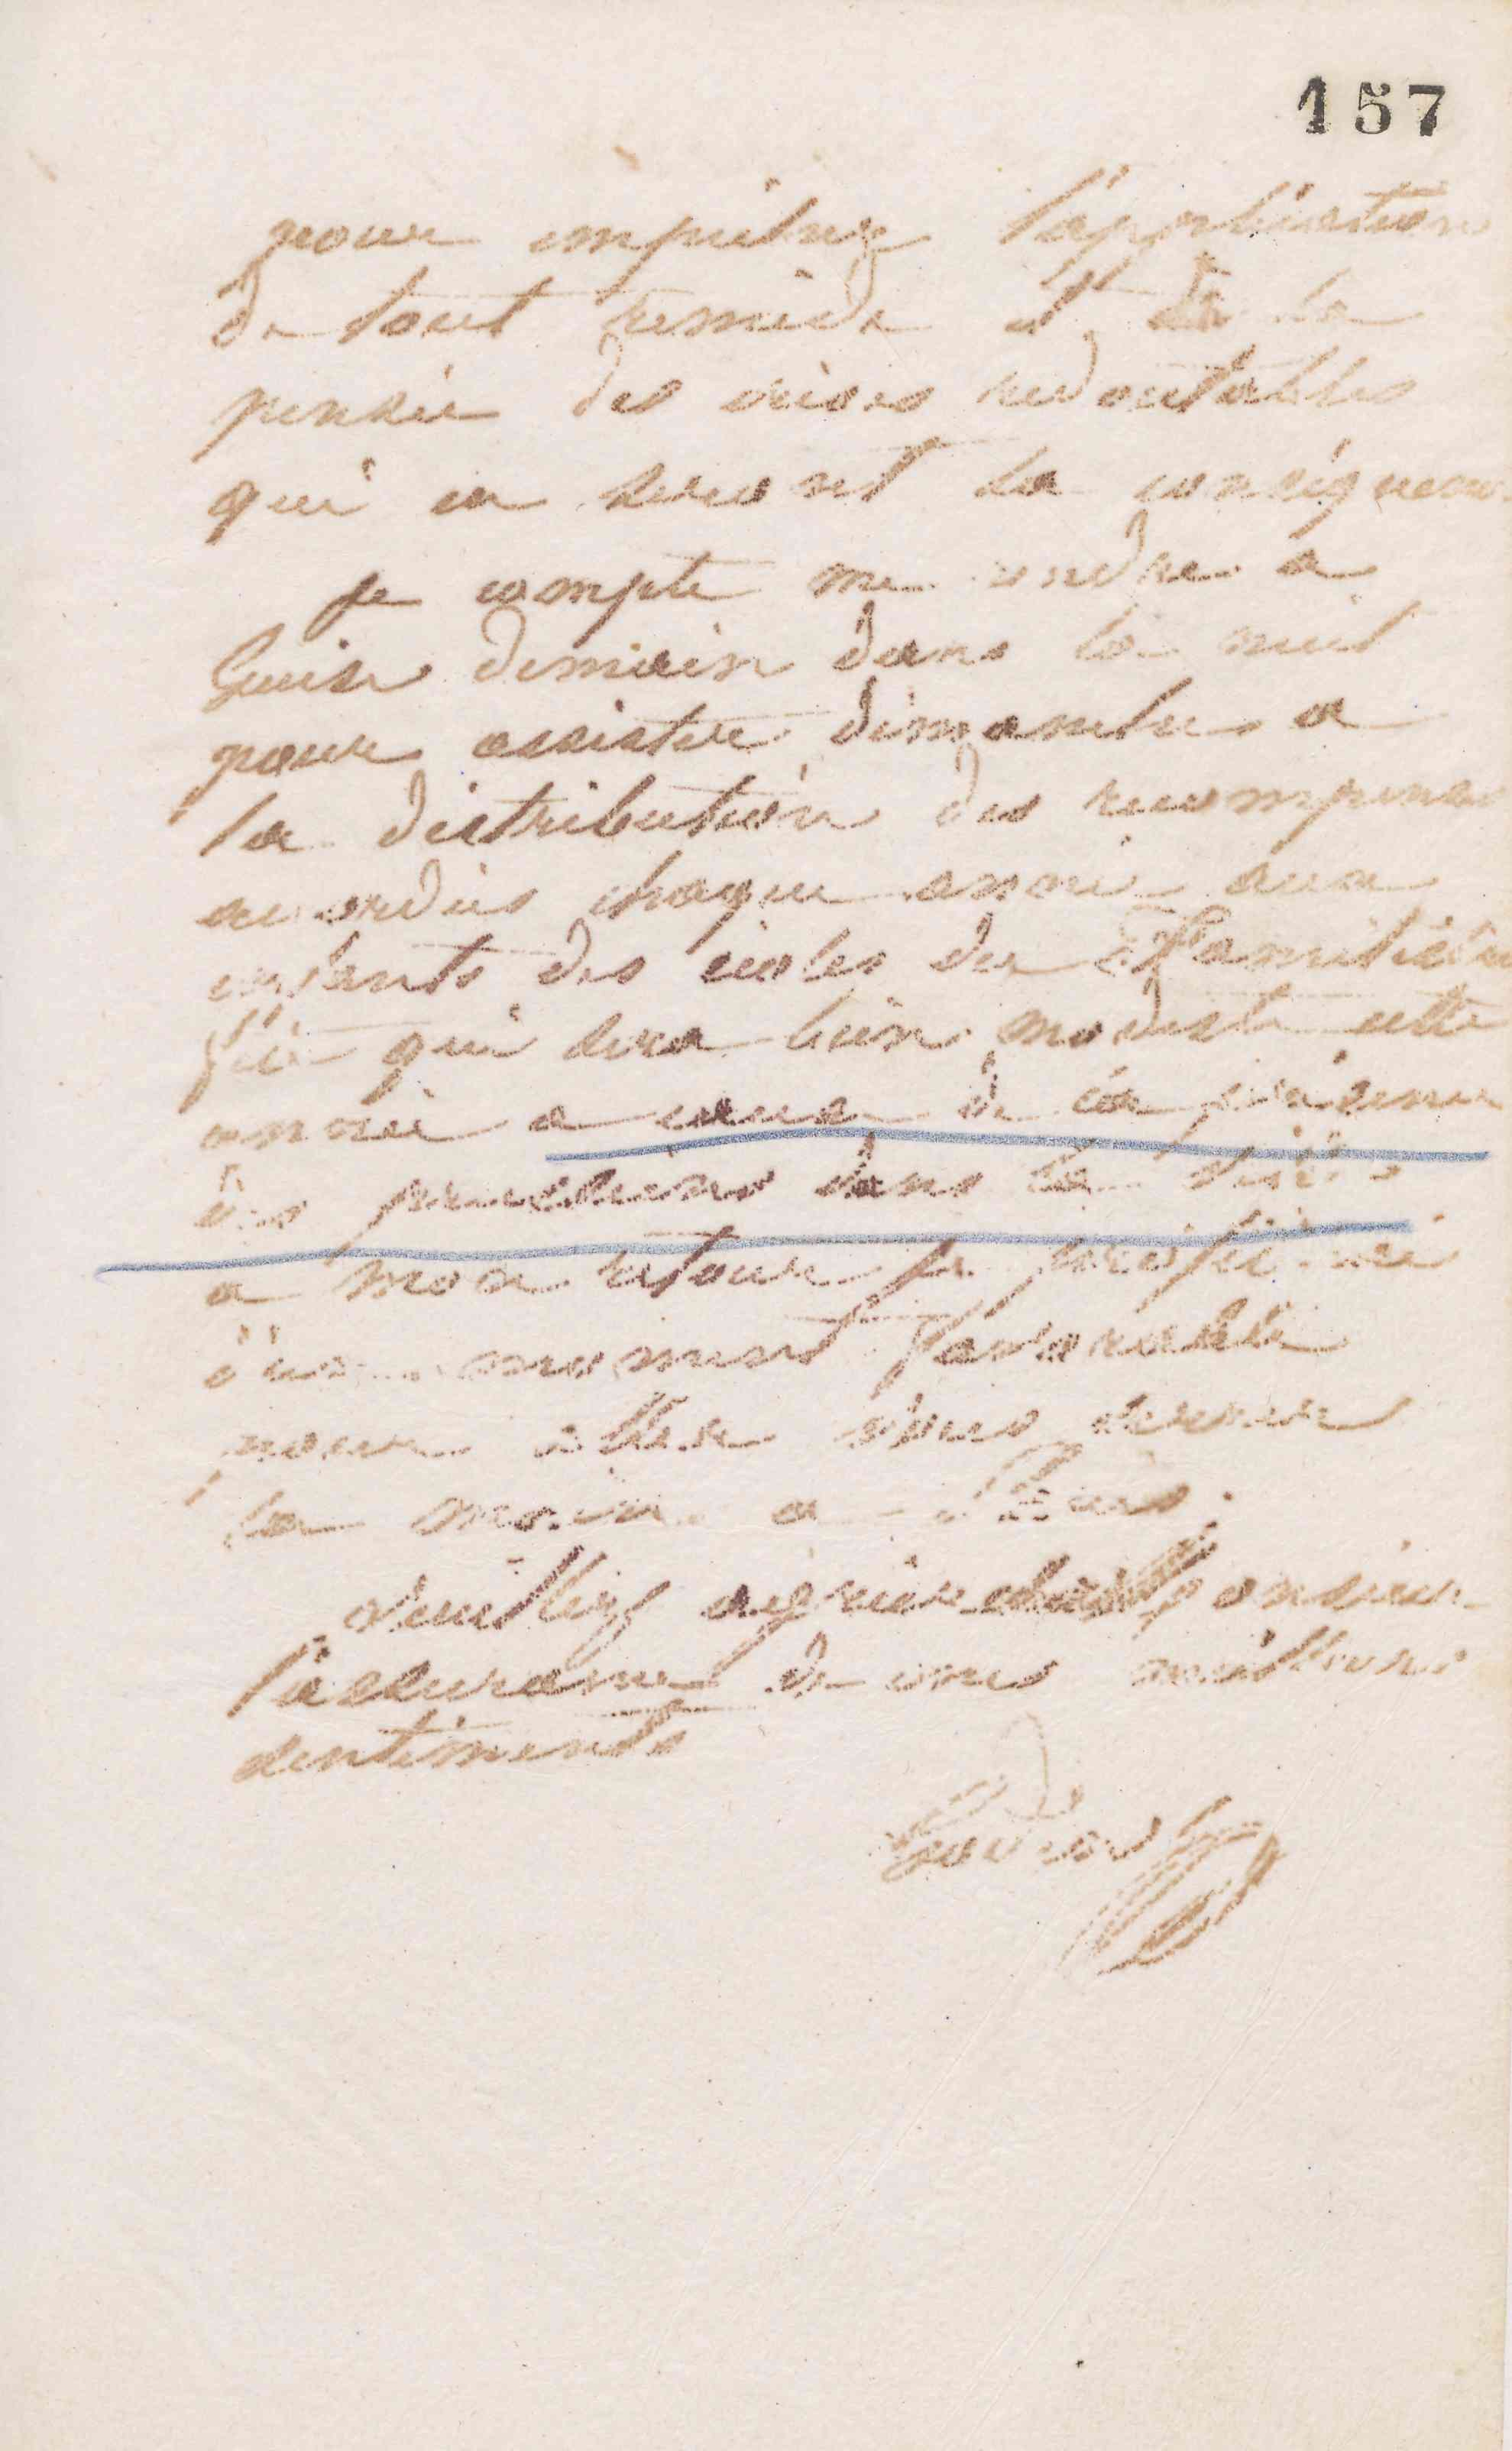 157
pour empêcher l'application
de tout remède et de la
pensée des crises redoutables
qui en seront la conséquence
Je compte me rendre a
Guise demain dans la nuit
pour assister dimanche a
la distribution des recompenses
accordées chaque année aux
enfants des écoles du Familistère
fête qui sera bien modeste cette
année a cause de la présence
des prussiens dans la
a mon retour je profiterai
d'un moment favorable
pour aller vous serrer
la main a
Veuillez agréer cher Monsieur
l'assurance de mes meilleurs
sentiments
Godin